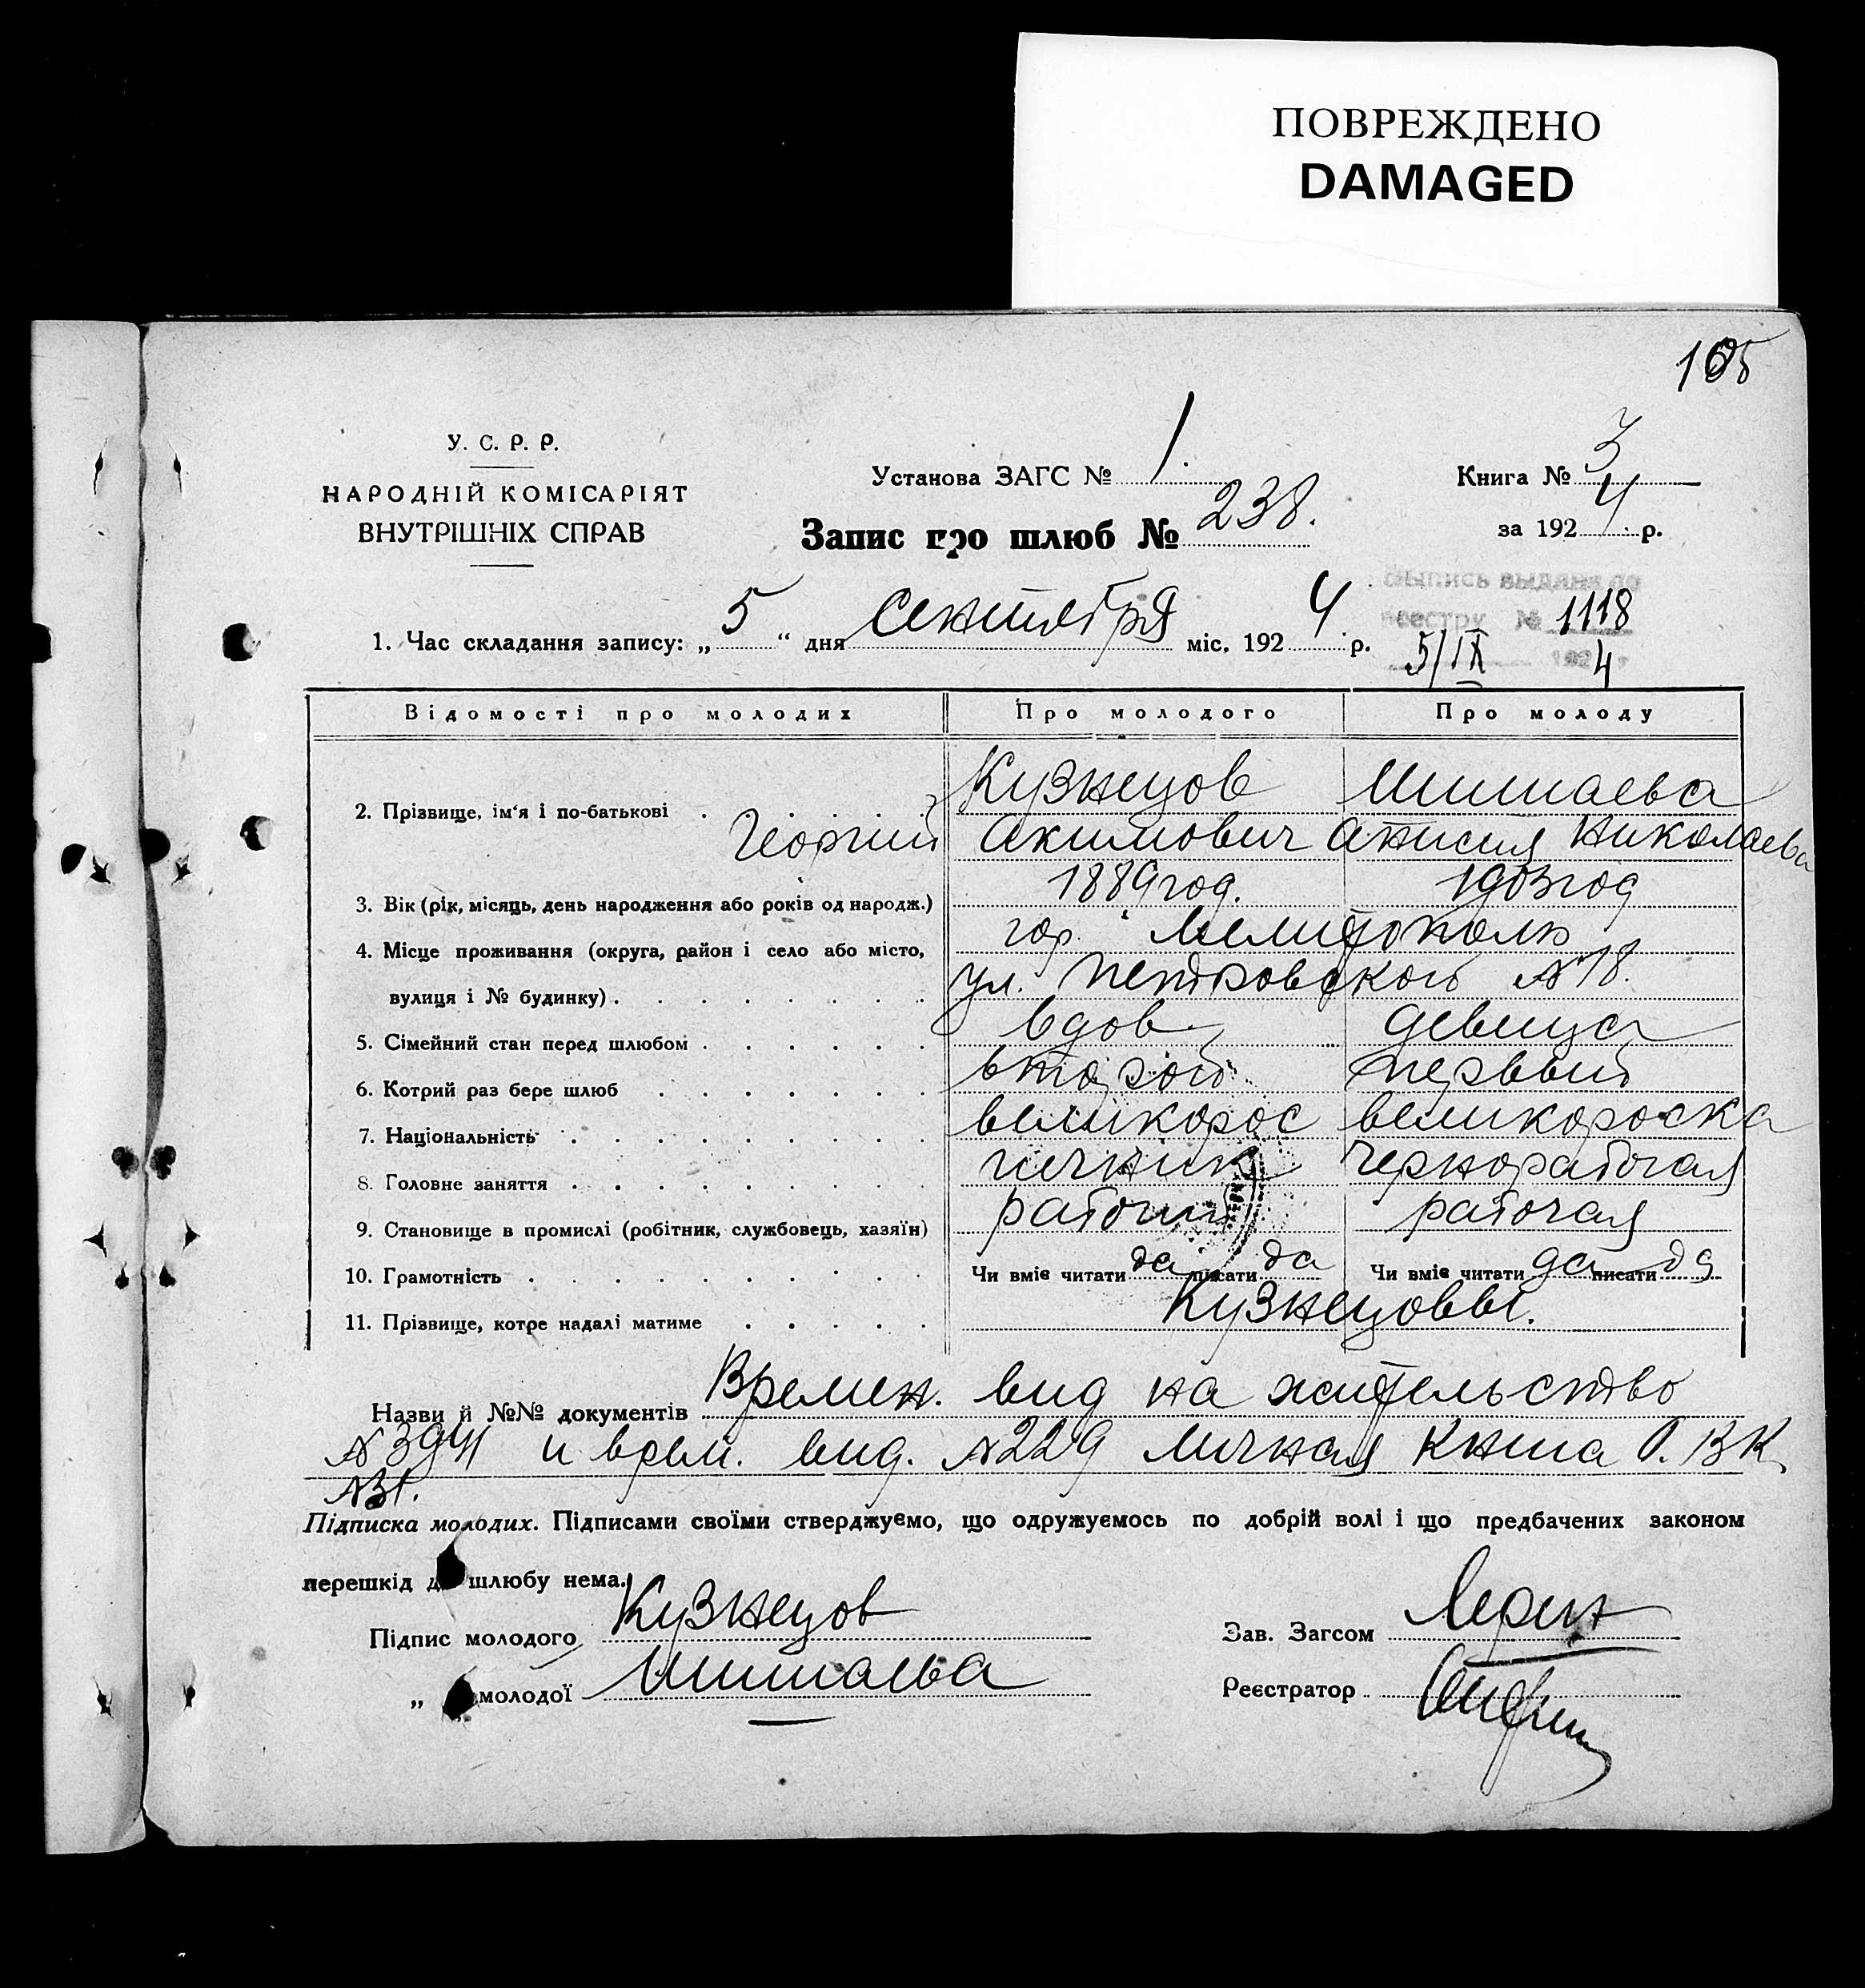 ПОВРЕЖДЕНО
DAMAGED
105
У. С. Р. Р.
НАРОДНІЙ КОМІСАРІЯТ
ВНУТРІШНІХ СПРАВ
Установа ЗАГС № 1.
Книга № 3
Запис про шлюб № 238.
за 1924 р.
Выпись выдана по
реестру № 1118
5/IX 1924 г
1. Час складання запису: „5“ дня сентября міс. 1924 р.
Відомості про молодих Про молодого Про молоду
Кузнецов
2. Прізвище, ім'я і по-батькові
Георгий Акимович Анисия Николаева
3. Вік (рік, місяць, день народження або років од народж.) 1889 год. 1903 год
4. Місце проживання (округа, район і село або місто, гор. Мелитополь
вулиця і № будинку) ул. Петровского №18.
5. Сімейний стан перед шлюбом вдов девица
6. Котрий раз бере шлюб второй первый
7. Національність великорос великороска
8. Головне заняття печник чернорабочая
9. Становище в промислі (робітник, службовець, хазяїн) рабочий рабочая
10. Грамотність Чи вміє читати да писати да Чи вміє читати да писати да
11. Прізвище, котре надалі матиме Кузнецовы.
Назви й №№ документів Времен. вид на жительство
№ 3941 и врем. вид. №229 личная книга О. В К
№31.
Підписка молодих. Підписами своїми стверджуємо, що одружуємось по добрій волі і що предбачених законом
перешкід до шлюбу нема.
Підпис молодого Кузнецов
Зав. Загсом
„ молодої
Реєстратор